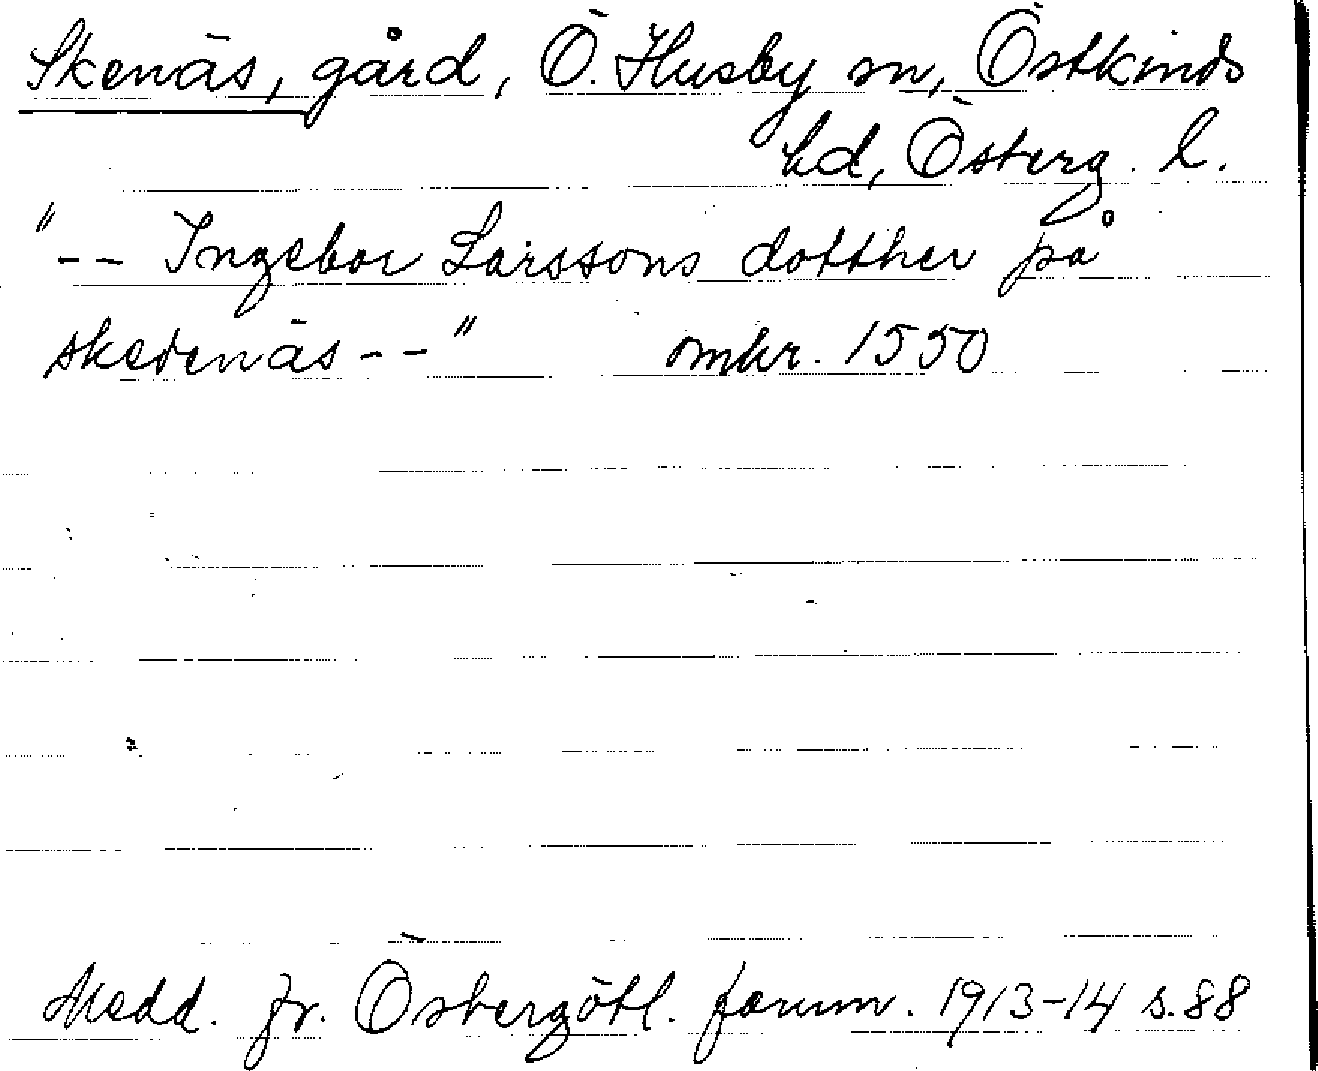 Skenäs, gård, Ö. Husby sn, Östkinds
hd, Österg. l.
"-- Ingebor Larssons dotther på
skedenäs--" omkr. 1550
Medd. fr. Östergötl. fornm. 1913-14 s. 88